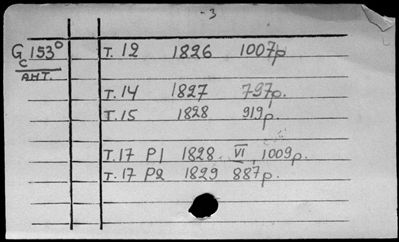 - 3
Gc 153° T. 12 1826 1007p
АНТ.
T. 14 1827 797p.
T. 15 1828 919p.
T. 17 P1 1828 VI, 1009p.
T. 17 P2 1829 887p.